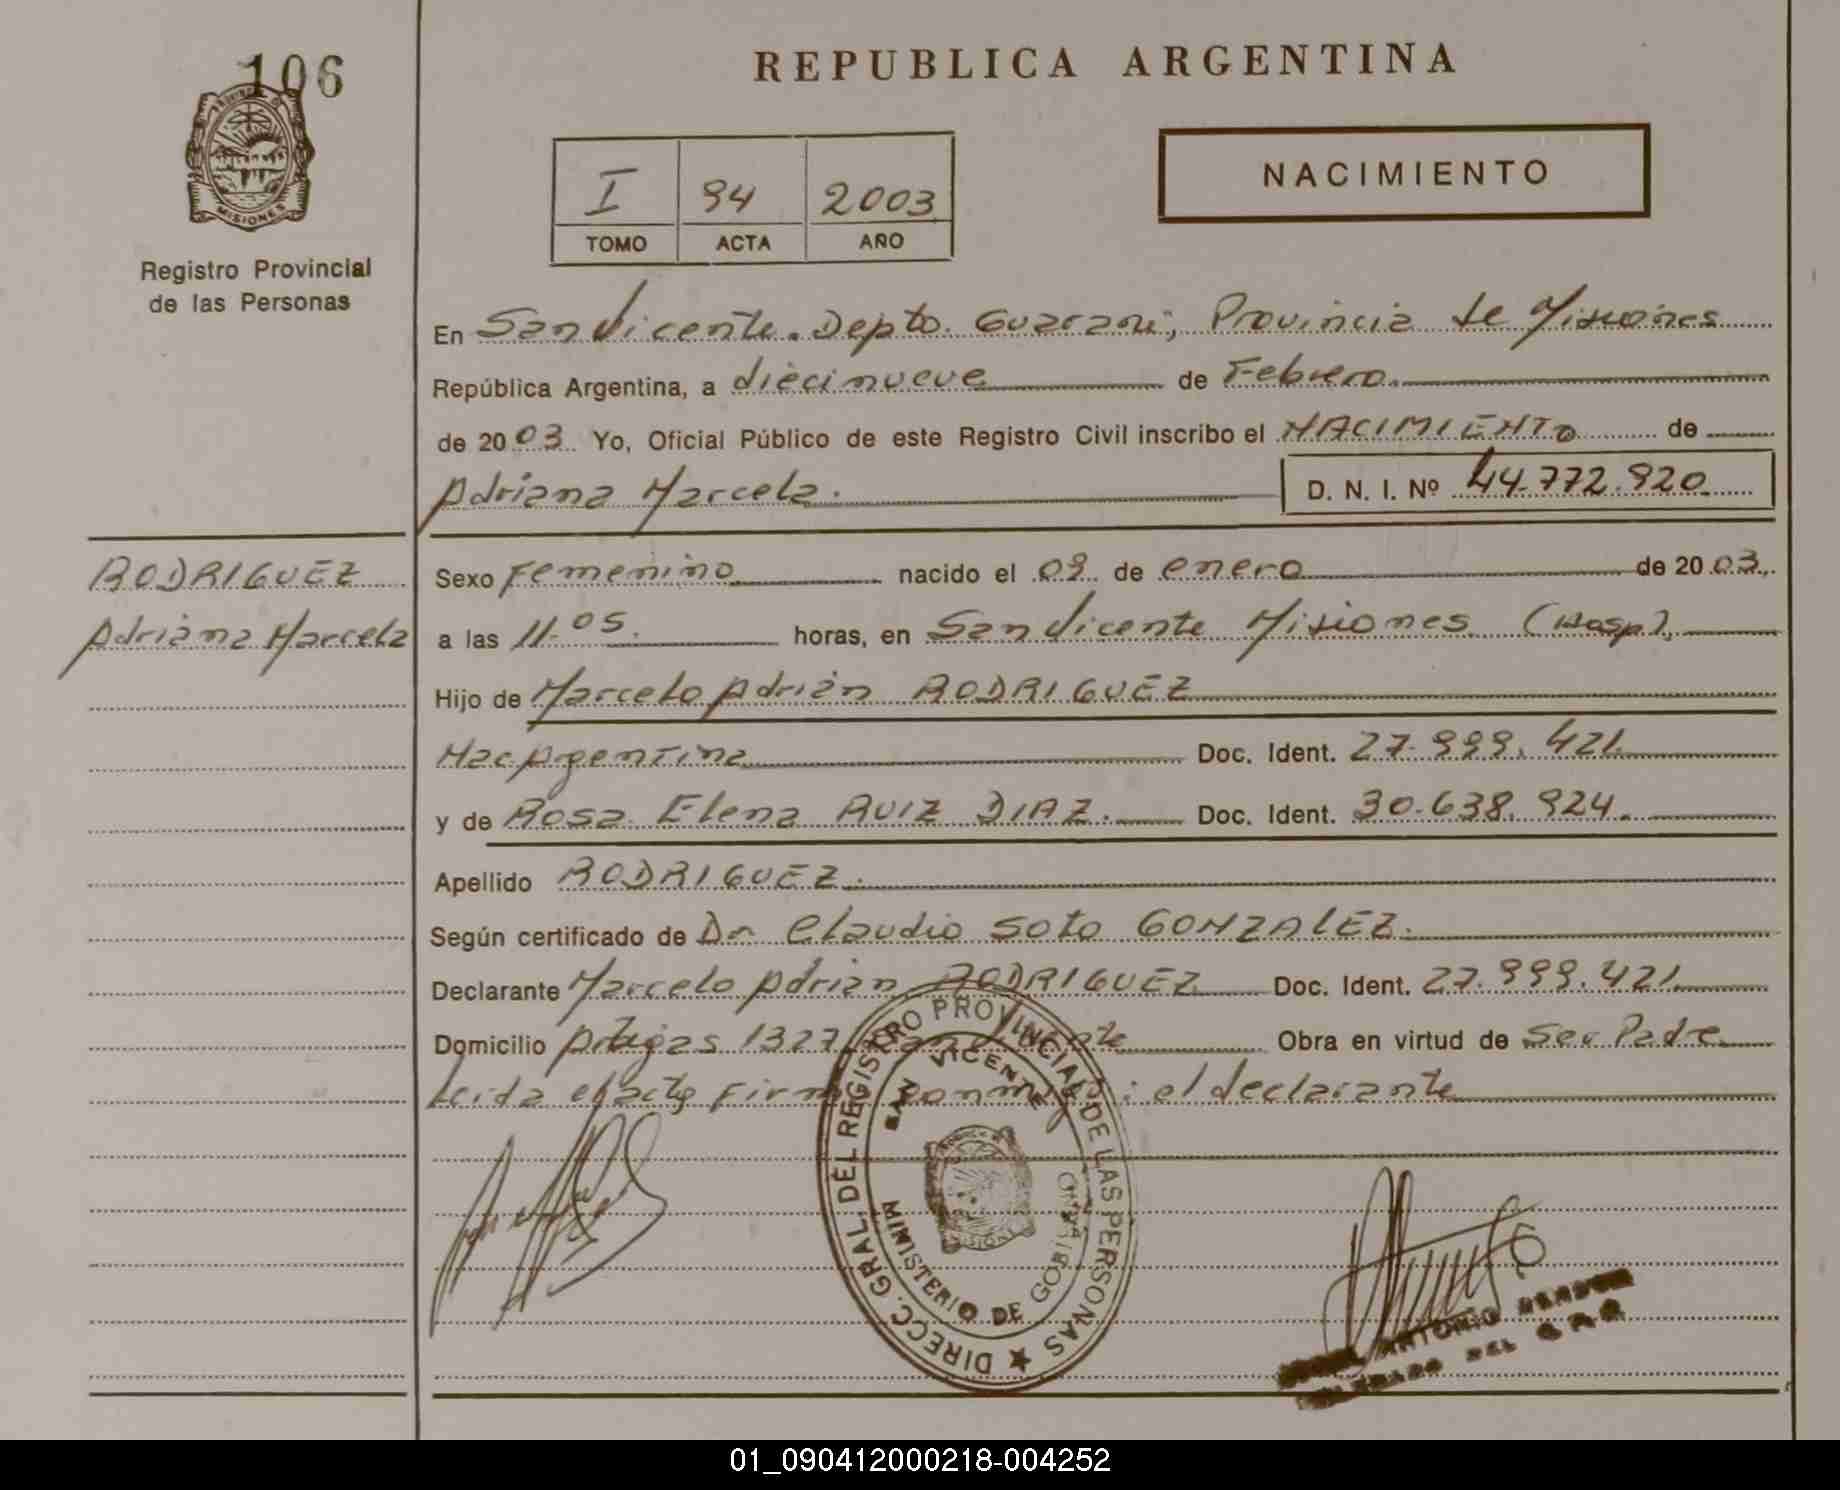 106
MISIONES
Registro Provincial
de las Personas
REPUBLICA ARGENTINA
NACIMIENTO
I 94 2003
TOMO ACTA AÑO
En San Vicente. Depto. Guarani, Provincia de Misiones
República Argentina, a diecinueve de Febrero.
de 2003 Yo, Oficial Público de este Registro Civil inscribo el NACIMIENTO de
Adriana Marcela. D. N. I. Nº 44.772.920
RODRIGUEZ
Adriana Marcela
Sexo Femenino nacido el 09 de enero de 2003.
a las 11.05. horas, en San Vicente Misiones (Hosp).
Hijo de Marcelo Adrián RODRIGUEZ
Nac Argentina Doc. Ident. 27.999.421
y de Rosa Elena RUIZ DIAZ. Doc. Ident. 30.638.924.
Apellido RODRIGUEZ.
Según certificado de Dr Claudio Soto GONZALEZ.
Declarante Marcelo Adrián RODRIGUEZ Doc. Ident. 27.999.421
Domicilio Artigas 1327 San Vicente Obra en virtud de Ser Padre
Leida el acta firma conmigo: el declarante
DIRECC. GRAL. DEL REGISTRO PROVINCIAL DE LAS PERSONAS
SAN VICENTE
MINISTERIO DE GOBIERNO
ANTONIO
DEL
01_090412000218-004252